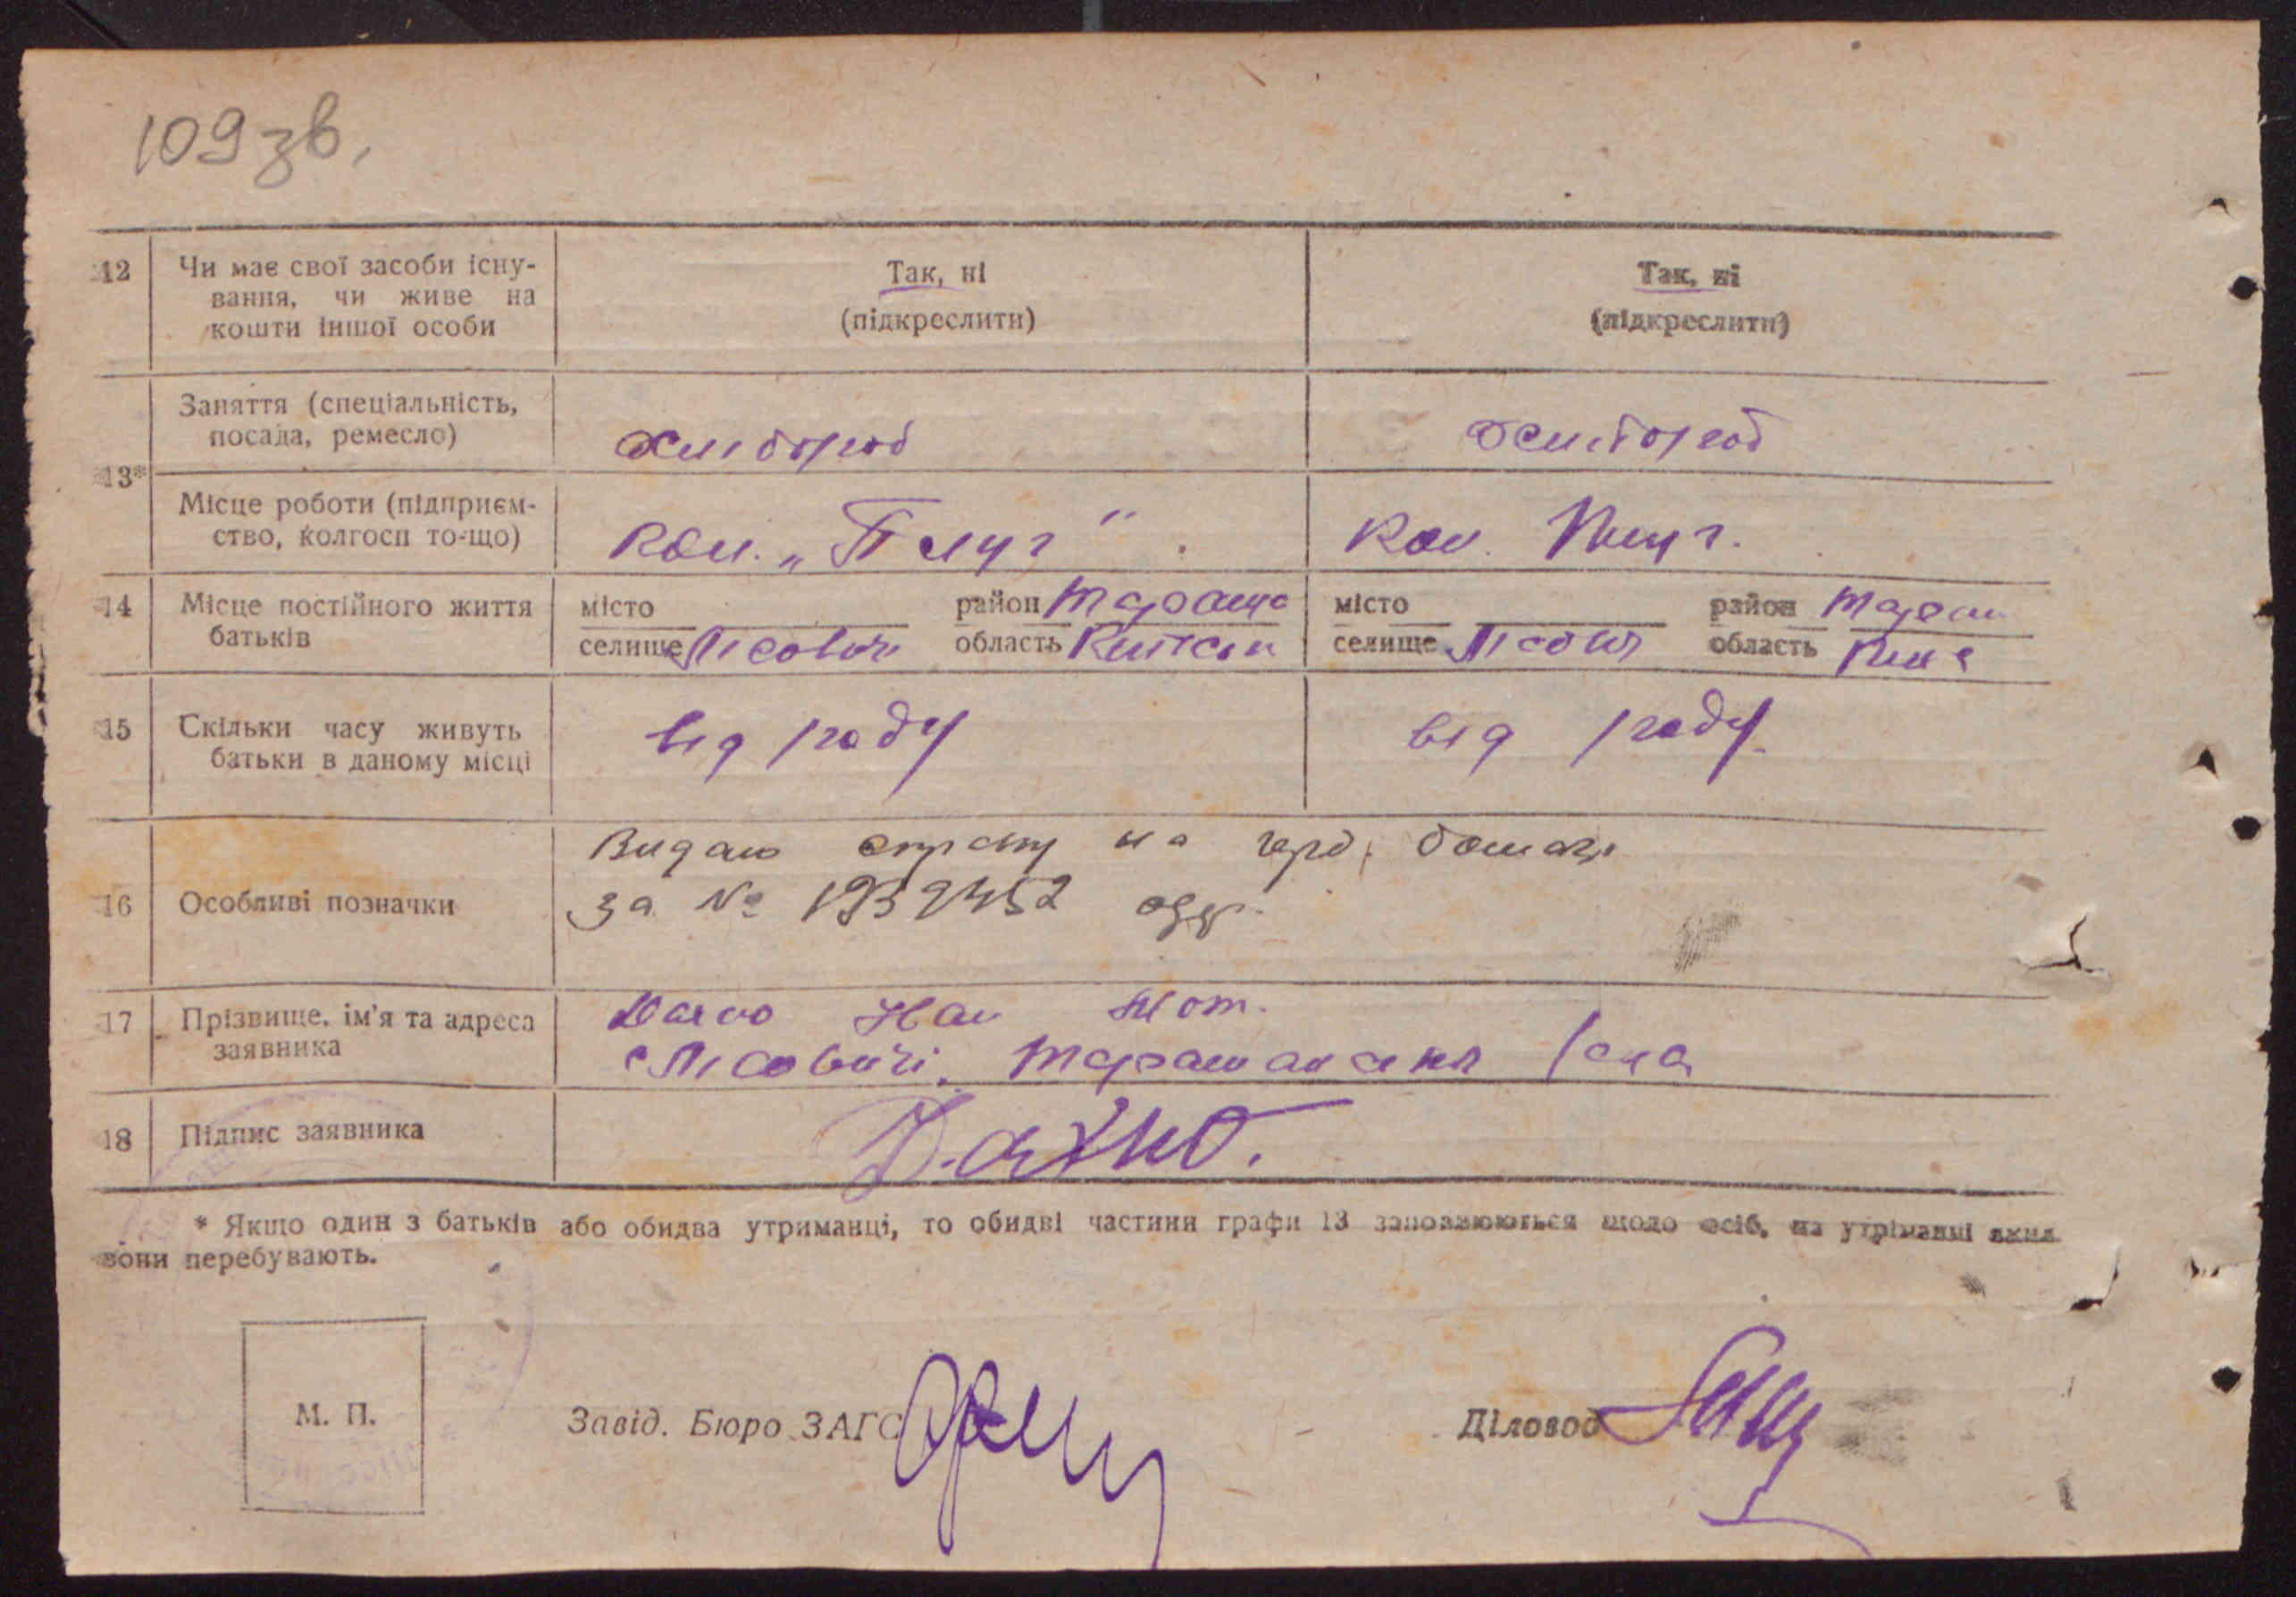 109 зв.
12 Чи має свої засоби існу- Так, ні Так, ні
вання, чи живе на
кошти іншої особи (підкреслити) (підкреслити)
Заняття (спеціальність,
посада, ремесло) хлібороб хлібороб
13*
Місце роботи (підприєм-
ство, колгосп то-що) кол. „Плуг" кол. Плуг.
14 Місце постійного життя місто район Тараща місто район Тараш
батьків селище Лісовичі область Київськ селище Лісович область Київ
15 Скільки часу живуть від роду від роду.
батьки в даному місці
Видано на
16 Особливі позначки за №
17 Прізвище, ім'я та адреса Дахно
заявника с Лісовичі. Таращанськ
18 Підпис заявника Дахно.
* Якщо один з батьків або обидва утриманці, то обидві частини графи 13 заповнюються щодо осіб, на утріманні яких
вони перебувають.
М. П. Завід. Бюро ЗАГС Діловод